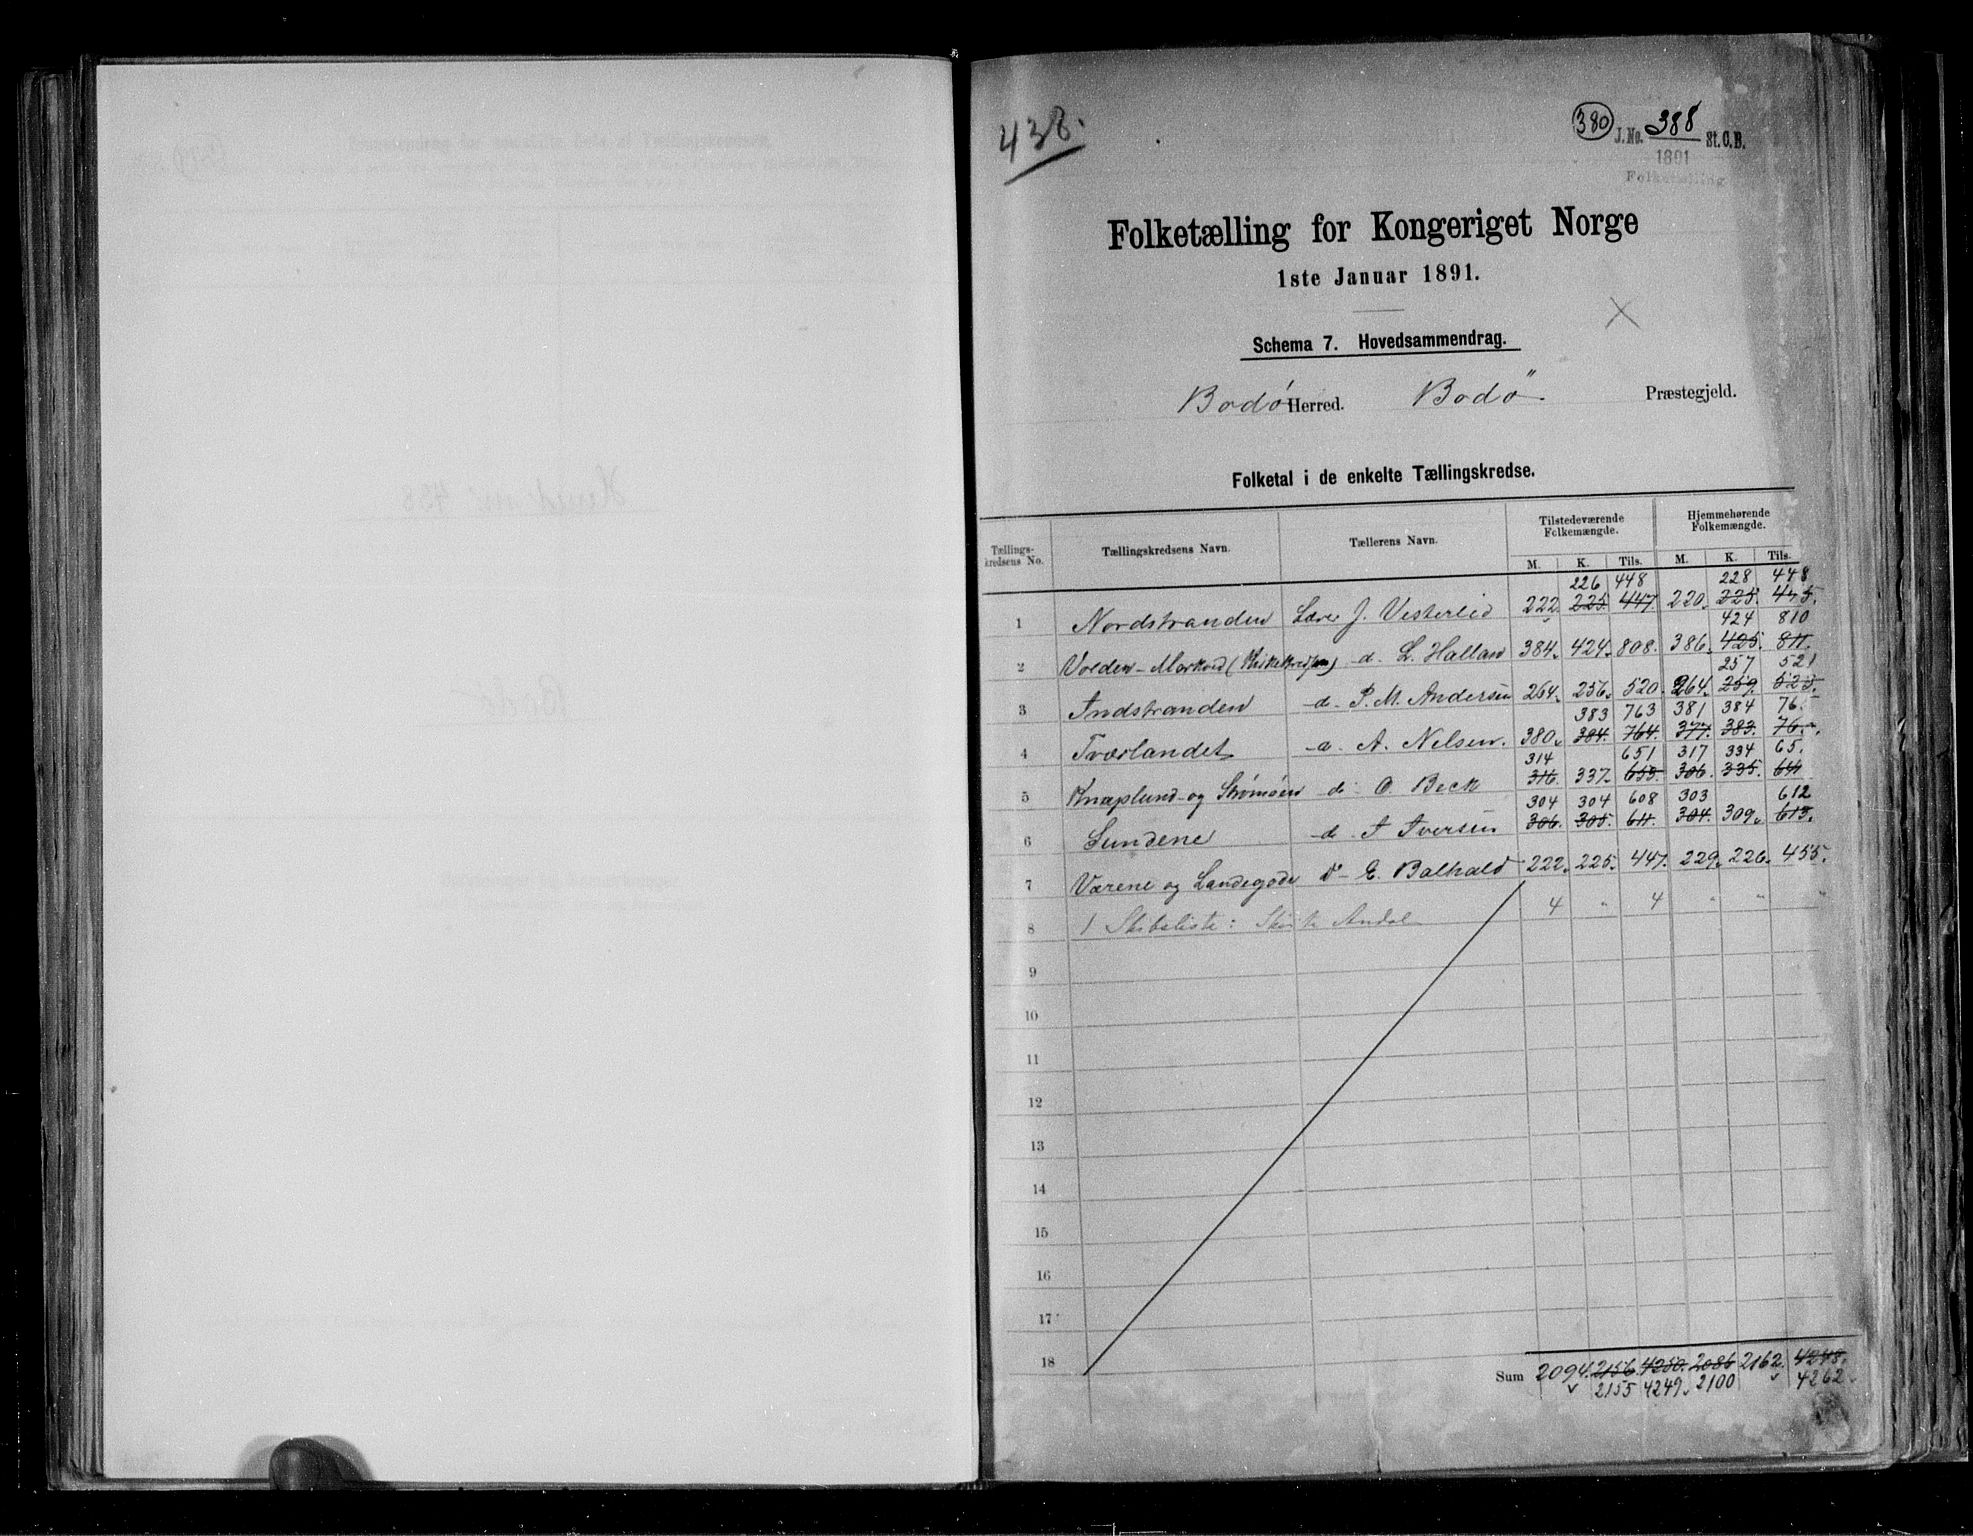 438.
380
J. No. 388 St. C. B.
1891
Folketælling
Folketælling for Kongeriget Norge
1ste Januar 1891.
Schema 7. Hovedsammendrag.
Bodø Herred. Bodø Præstegjeld.
Folketal i de enkelte Tællingskredse.
Tællings-kredsens No. Tællingskredsens Navn. Tællerens Navn. Tilstedeværende Folkemængde. Hjemmehørende Folkemængde.
M. K. Tils. M. K. Tils.
226 448 228 448
1 Nordstranden Lærer J. Vesterlid 222. 225. 447. 220. 225. 445.
424 810
2 Volden - d. L. Halland 384. 424. 808. 386. 425. 811.
257 521
3 Indstranden - d. P. M. Andersen 264. 256. 520. 264. 259. 523.
383 763 381 384 76
4 Tværlandet - d. A. Nelsen. 380. 384. 764. 377. 383. 76
314 651 317 334 65
5 Knaplund og Strømøen - d. O. Beck 316. 337. 653. 306. 335. 641
304 304 608 303 612
6 Lundene - d. I Iversen 306. 305. 611. 304. 309. 613.
7 Værene og Landegode d. E. Balhald 222. 225. 447. 229. 226. 455.
8 1 Skibsliste: 4 " 4 " " "
9
10
11
12
13
14
15
16
17
18
Sum 2094. 2156. 4250. 2086 2162. 4248.
2155 4249. 2100 4262.